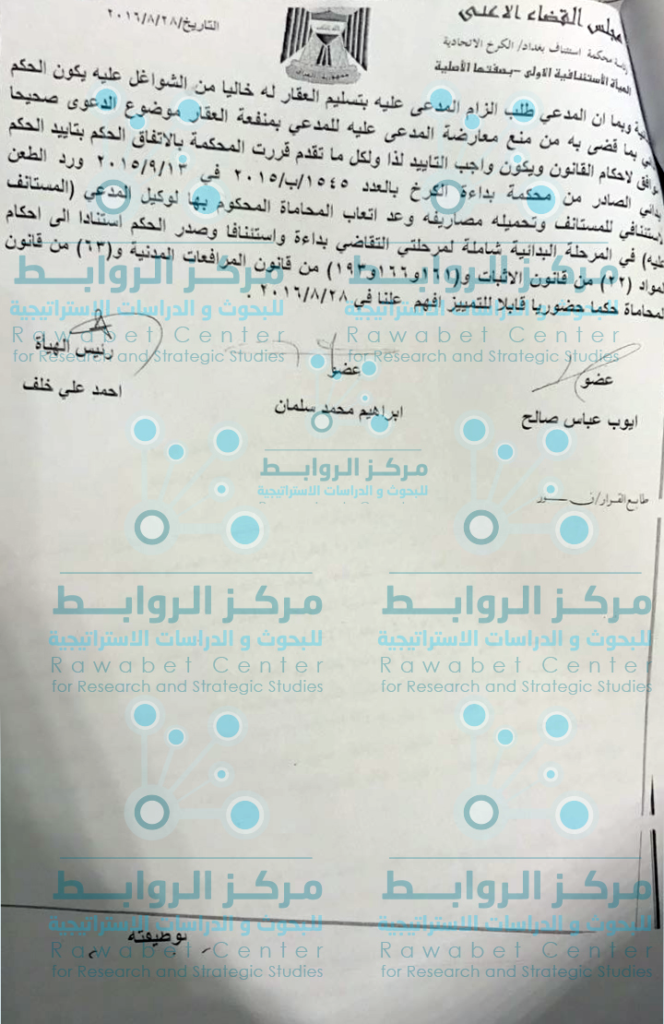 مجلس القضاء الاعلى
رئاسة محكمة استئناف بغداد/ الكرخ الاتحادية
الهيأة الأستئنافية الاولى -بصفتها الأصلية
التاريخ/٢٠١٦/٨/٢٨
وبما ان المدعي طلب الزام المدعى عليه بتسليم العقار له خاليا من الشواغل عليه يكون الحكم
بما قضى به من منع معارضة المدعى عليه للمدعي بمنفعة العقار موضوع الدعوى صحيحا
لاحكام القانون ويكون واجب التاييد لذا ولكل ما تقدم قررت المحكمة بالاتفاق الحكم بتاييد الحكم
الصادر من محكمة بداءة الكرخ بالعدد ١٥٤٥/ب/٢٠١٥ في ٢٠١٥/٩/١٣ ورد الطعن
الأستئنافي للمستانف وتحميله مصاريفه وعد اتعاب المحاماة المحكوم بها لوكيل المدعي (المستانف
عليه) في المرحلة البدائية شاملة لمرحلتي التقاضي بداءة واستئنافا وصدر الحكم استنادا الى احكام
المواد (٢٢) من قانون الاثبات و(١٦١و١٦٦و١٩٣) من قانون المرافعات المدنية و(٦٣) من قانون
المحاماة حكما حضوريا قابلا للتمييز افهم علنا في ٢٠١٦/٨/٢٨ .
عضو
ايوب عباس صالح
عضو
ابراهيم محمد سلمان
رئيس الهيأة
احمد علي خلف
طابع القرار/
مركز الروابط
للبحوث و الدراسات الاستراتيجية
Rawabet Center
for Research and Strategic Studies
مركز الروابط
للبحوث و الدراسات الاستراتيجية
Rawabet Center
for Research and Strategic Studies
مركز الروابط
للبحوث و الدراسات الاستراتيجية
مركز الروابط
للبحوث و الدراسات الاستراتيجية
Rawabet Center
for Research and Strategic Studies
مركز الروابط
للبحوث و الدراسات الاستراتيجية
Rawabet Center
for Research and Strategic Studies
مركز الروابط
للبحوث و الدراسات الاستراتيجية
Rawabet Center
for Research and Strategic Studies
مركز الروابط
للبحوث و الدراسات الاستراتيجية
Rawabet Center
for Research and Strategic Studies